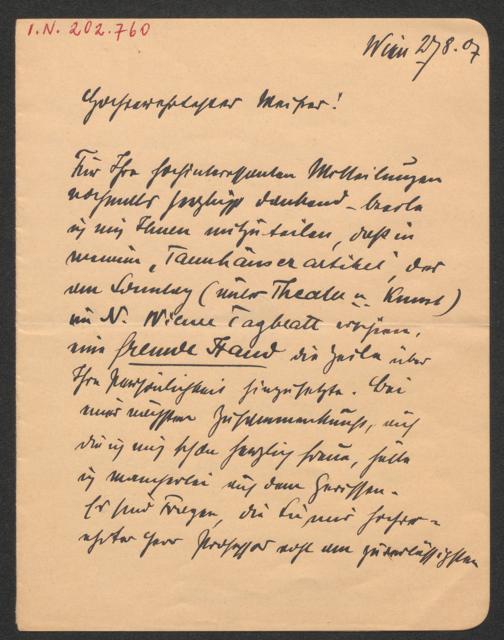 I.N. 202.760
Wien 27/8.07
Hochverehrtester Meister!
Für Ihre hochinteressanten Mitteilungen
nochmals herzlichst dankend – beeile
ich mich Ihnen mitzuteilen, daß in
meinem „Tannhäuserartikel“, der
am Sonntag (unter Theater u. Kunst)
im N. Wiener Tagblatt erschien,
eine fremde Hand die Zeile über
Ihre Persönlichkeit hinzusetzte. Bei
unser nächsten Zusammenkunft, auf
die ich mich schon herzlich freue, hätte
ich mancherlei auf dem Gewissen.
Es sind Fragen, die Sie mir hochver-
ehrter Herr Professor wohl am zuverlässigsten